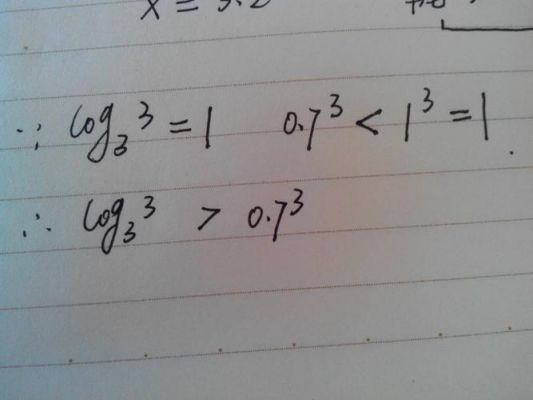 ∵ log₃3 = 1 0.7³ < 1³ = 1.
∴ log₃3 > 0.7³